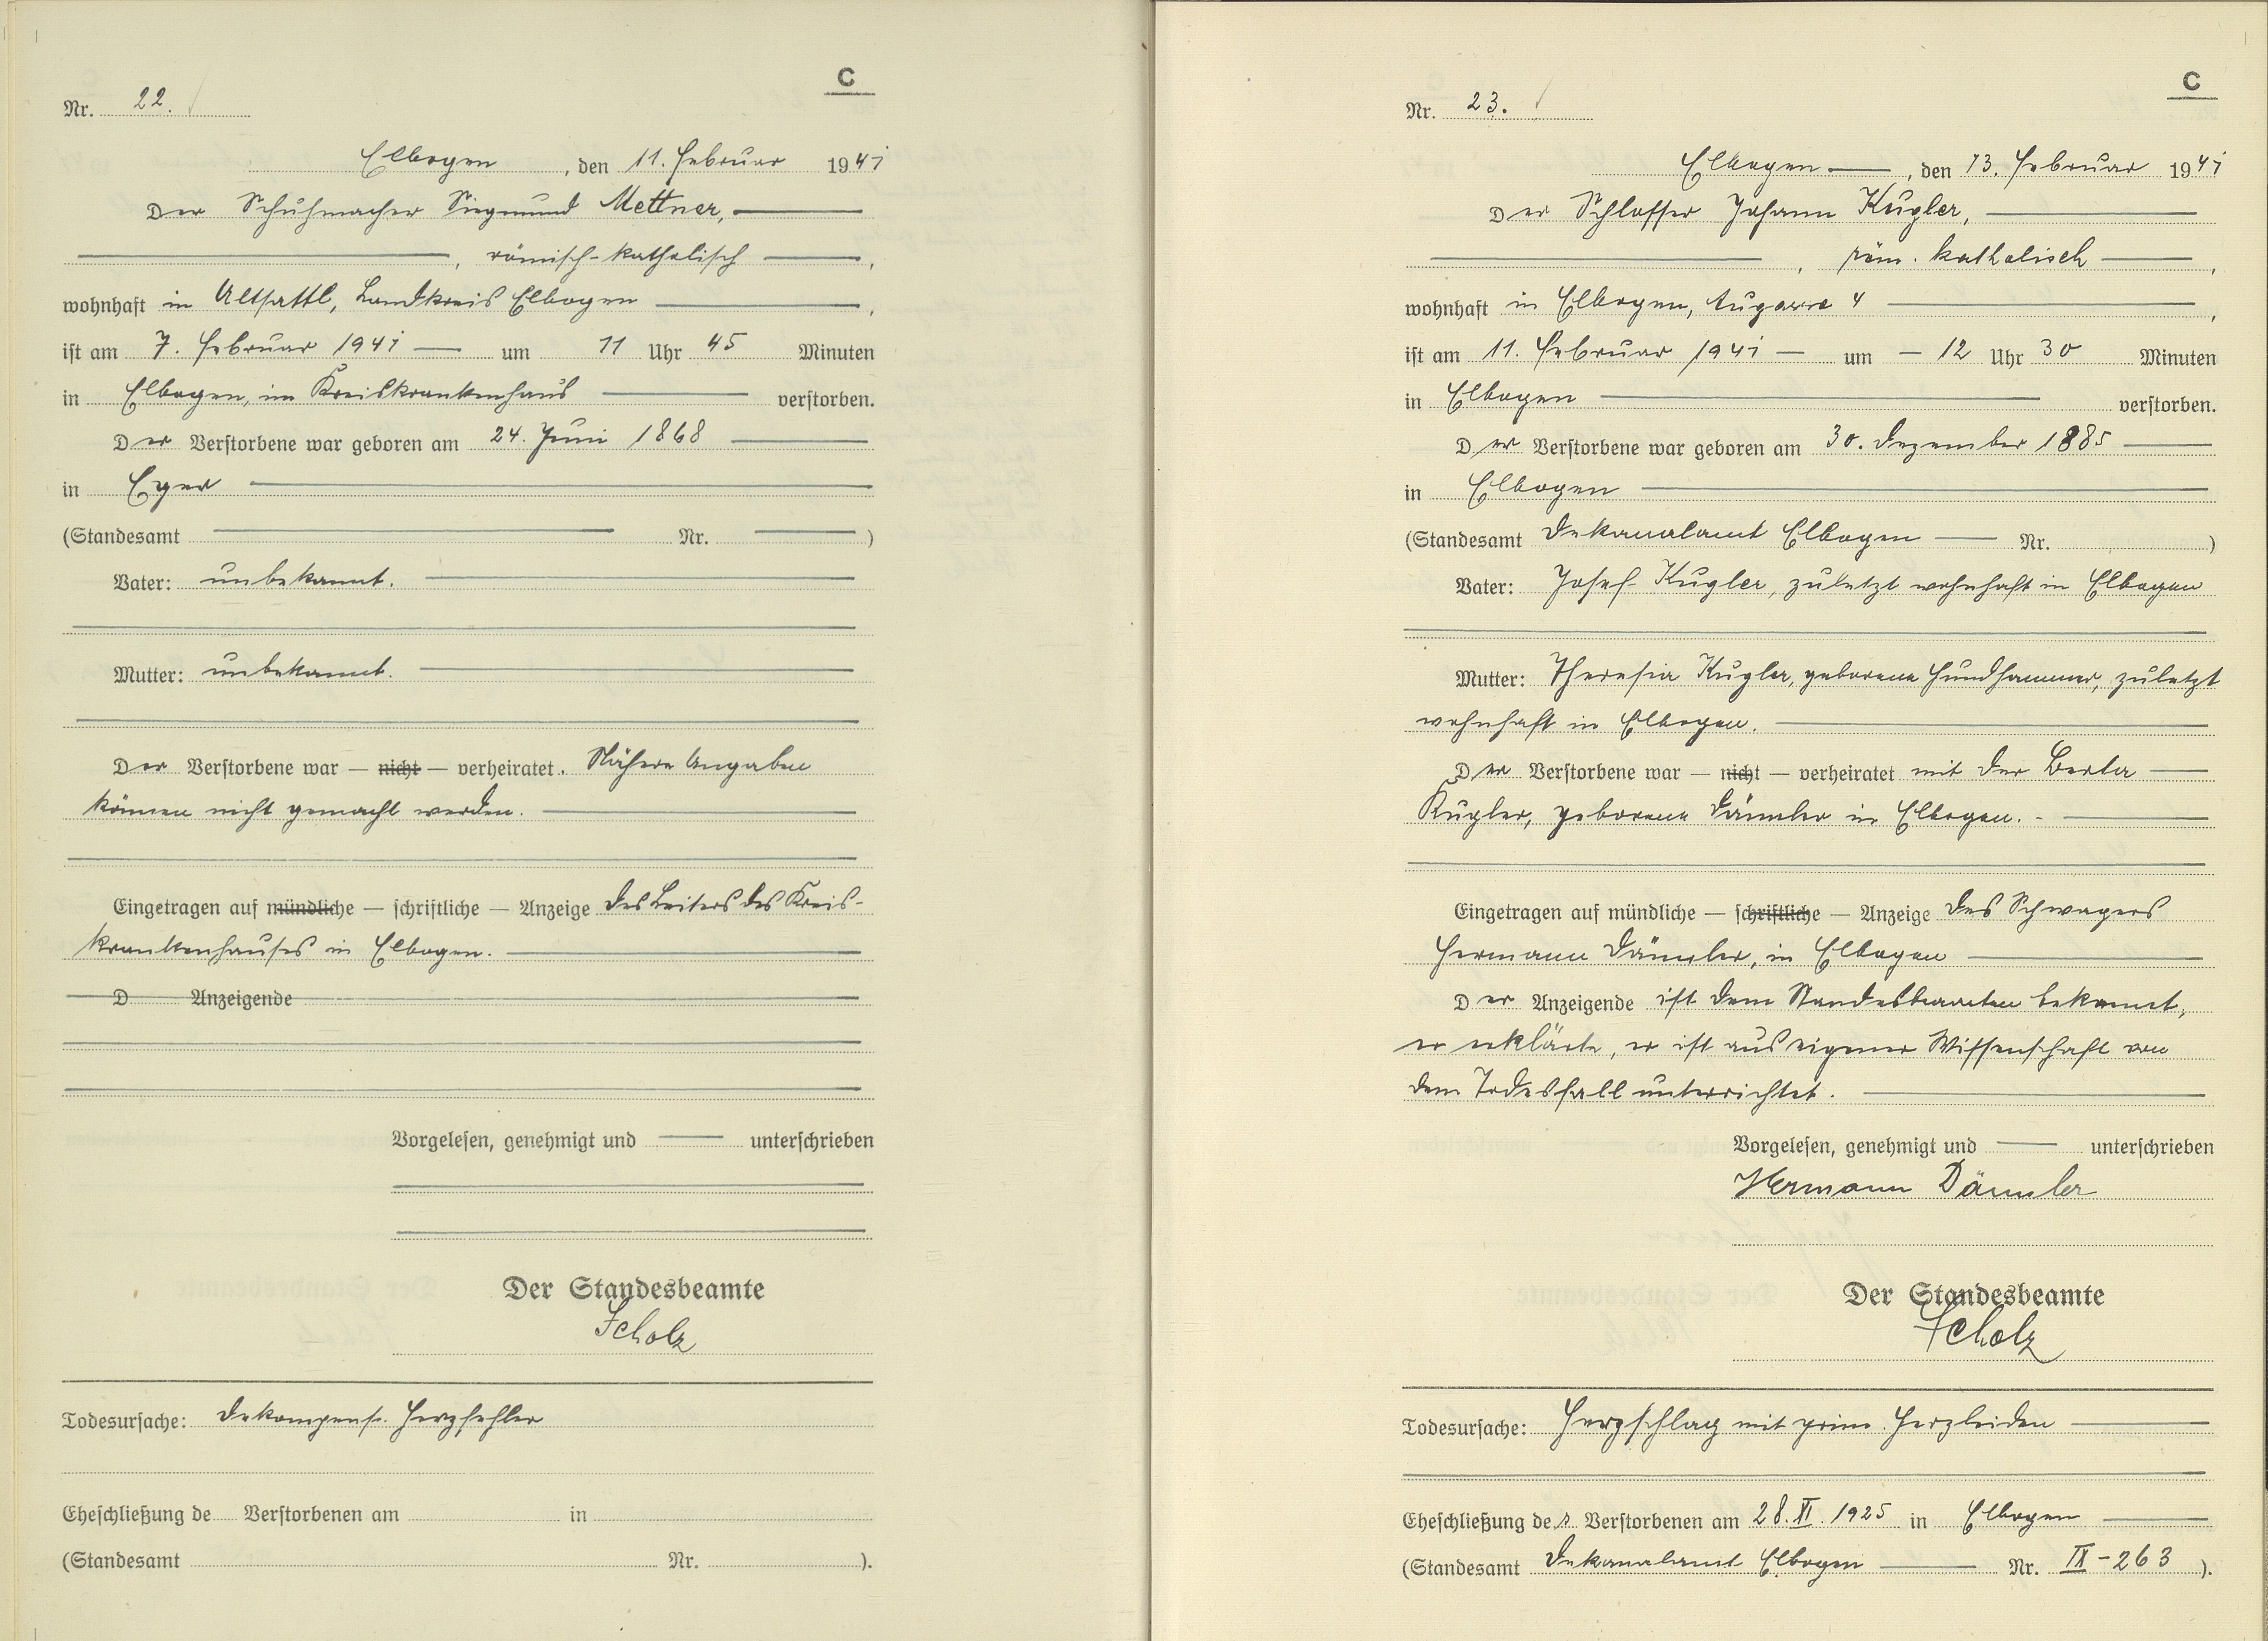 C
Nr. 22.
Elbogen, den 11. Februar 1941
Der Schuhmacher Siegmund Mettner,
, römisch-katholisch,
wohnhaft in Altsattl, Landkreis Elbogen,
ist am 7. Februar 1941 um 11 Uhr 45 Minuten
in Elbogen, im Kreiskrankenhaus verstorben.
Der Verstorbene war geboren am 24. Juni 1868
in Eger
(Standesamt Nr. )
Vater: unbekannt.
Mutter: unbekannt.
Der Verstorbene war — nicht — verheiratet. Nähere Angaben
können nicht gemacht werden.
Eingetragen auf mündliche — schriftliche — Anzeige des Leiters des Kreis-
krankenhauses in Elbogen.
D Anzeigende
Vorgelesen, genehmigt und — unterschrieben
Der Standesbeamte
Scholz
Todesursache: Dekompens. Herzfehler
Eheschließung de Verstorbenen am in
(Standesamt Nr. ).
C
Nr. 23.
Elbogen, den 13. Februar 1941
Der Schlosser Johann Kugler,
, röm. katholisch,
wohnhaft in Elbogen, 4,
ist am 11. Februar 1941 — um — 12 Uhr 30 Minuten
in Elbogen verstorben.
Der Verstorbene war geboren am 30. Dezember 1885
in Elbogen
(Standesamt Dekanalamt Elbogen — Nr. )
Vater: Josef Kugler, zuletzt wohnhaft in Elbogen
Mutter: Theresia Kugler, geborene Hundhammer, zuletzt
wohnhaft in Elbogen.
Der Verstorbene war — nicht — verheiratet mit der Berta
Kugler, geborene Dämler in Elbogen. -
Eingetragen auf mündliche — schriftliche — Anzeige des Schwagers
Hermann Dämler, in Elbogen
Der Anzeigende ist dem Standesbeamten bekannt,
er erklärte, er ist aus eigener Wissenschaft von
dem Todesfall unterrichtet.
Vorgelesen, genehmigt und — unterschrieben
Hermann Dämler
Der Standesbeamte
Scholz
Todesursache: Herzschlag mit prim. Herzleiden
Eheschließung des Verstorbenen am 28. XI. 1925 in Elbogen
(Standesamt Dekanalamt Elbogen — Nr. IX-263 ).